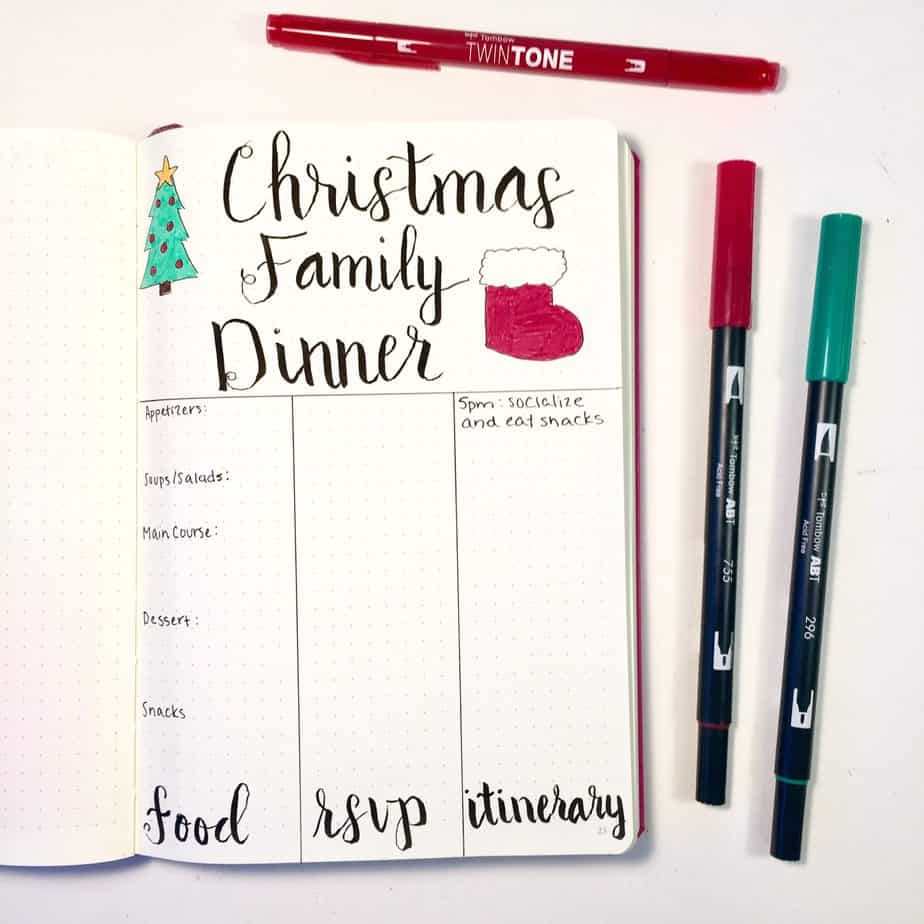 Tombow
TWINTONE
Christmas
Family
Dinner
Appetizers:
Soups/Salads:
Main Course:
Dessert:
Snacks
food
rsvp
5pm: socialize
and eat snacks
itinerary
23
Tombow ABT
Acid Free
755
Tombow ABT
Acid Free
296